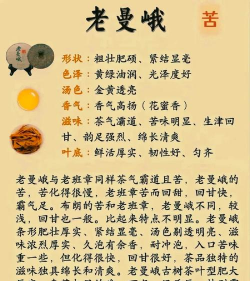 老曼峨
苦
形状：粗壮肥硕、紧结显毫
色泽：黄绿油润、光泽度好
汤色：金黄透亮
香气：香气高扬（花蜜香）
滋味：茶气霸道、苦味明显、生津回
甘、韵足强烈、绵长清爽
叶底：鲜活厚实、韧性好、匀齐
老曼峨与老班章同样茶气霸道且苦，老曼峨的
苦，苦化得很慢，老班章苦而回甜，回甘快，
霸气足。布朗的苦和老班章、老曼峨不同，较
浅，回甘也一般。比起来特点不明显。老曼峨
条形肥壮厚实、紧结显毫、汤色剔透明亮、滋
味浓烈厚实、久泡有余香、耐冲泡，入口苦味
重一些，但化得很快，回甘很好，茶品独特的
滋味独具绵长和清爽。老曼峨古树茶叶型肥大